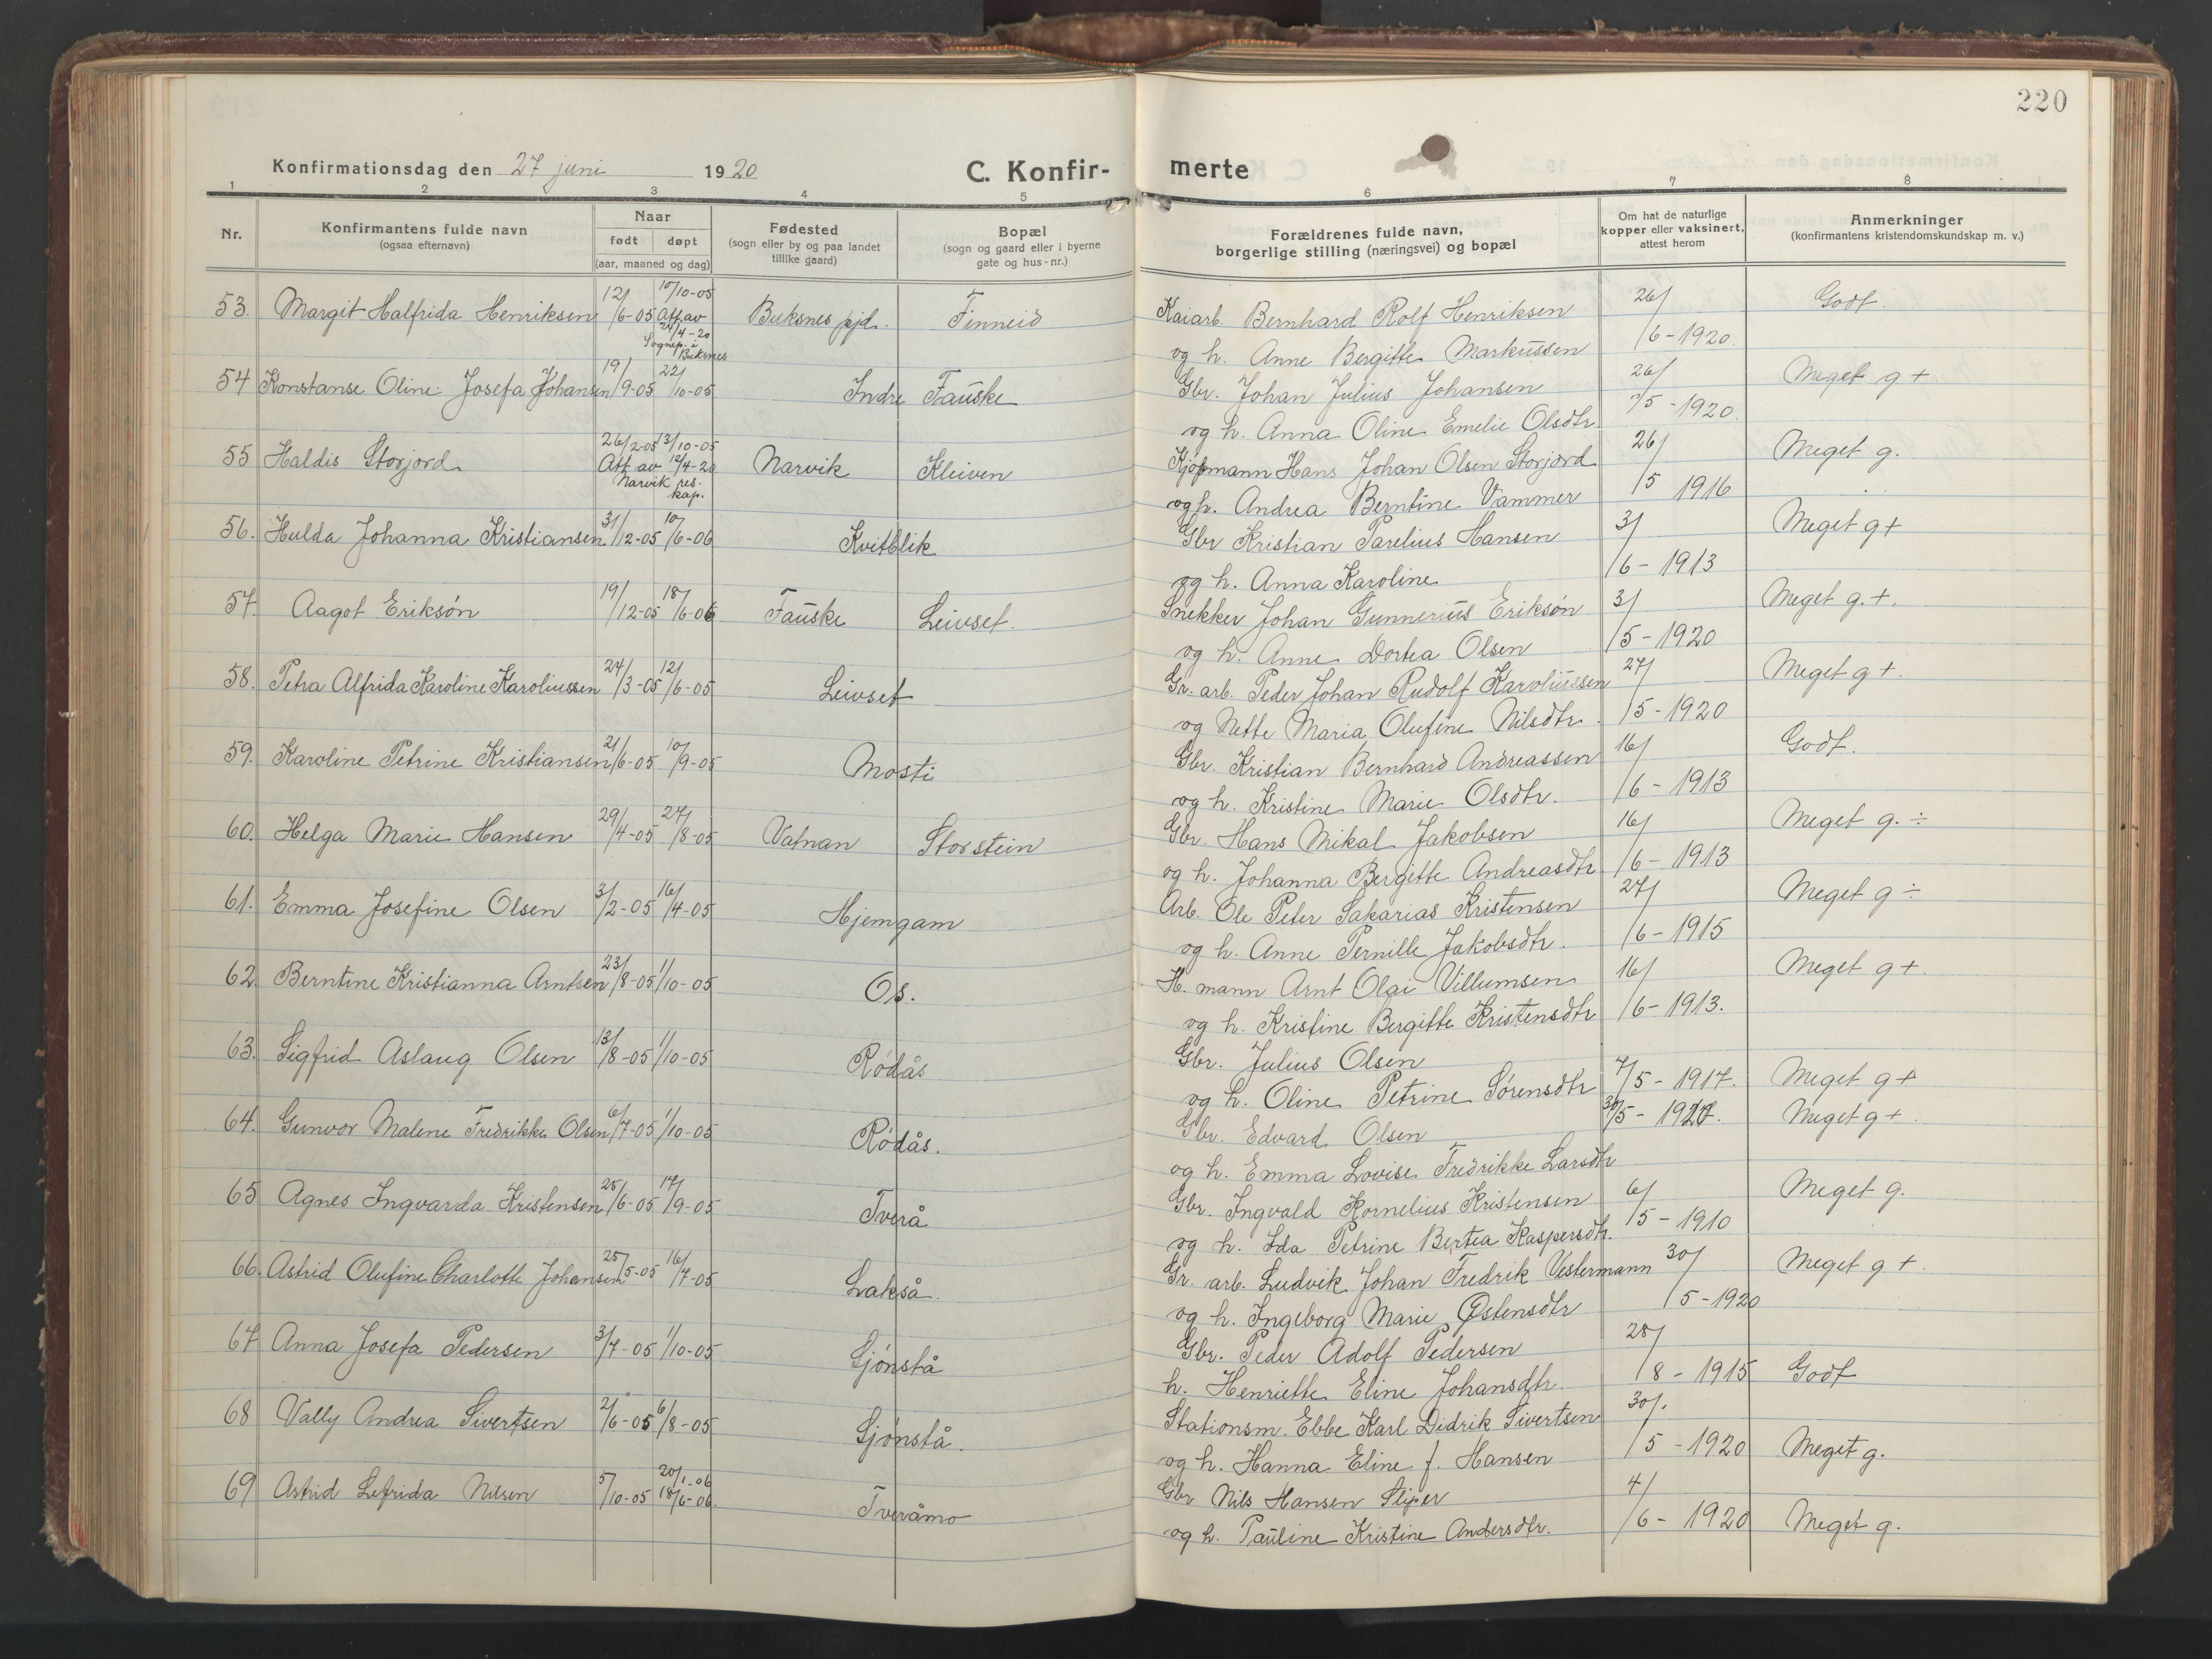 220
Konfirmationsdag den 27 juni 1920 C. Konfirmerte
1 2 3 4 5 6 7 8
Nr.
Konfirmantens fulde navn
(ogsaa efternavn)
Naar
født døpt
(aar, maaned og dag)
Fødested
(sogn eller by og paa landet
tillike gaard)
Bopæl
(sogn og gaard eller i byerne
gate og hus-nr.)
Forældrenes fulde navn,
borgerlige stilling (næringsvei) og bopæl
Om hat de naturlige
kopper eller vaksinert,
attest herom
Anmerkninger
(konfirmantens kristendomskundskap m. v.)
53. Margit Halfrida Henriksen 12/6-05 10/10-05 Att. av 24/4-20 Sognep. i Buksnes Buksnes pjd. Finneid Kaiarb. Bernhard Rolf Henriksen 26/6-1920. Godt.
og h. Anne Bergitte Markussen
54 Konstanse Oline Josefa Johansen 19/9-05 22/10-05 Indre Fauske Gbr. Johan Julius Johansen 26/5-1920. Meget g+
og h. Anna Oline Emelie Olsdtr.
55 Haldis Storjord 26/2-05 13/10-05 Att av 12/4-20 Narvik res. kap. Narvik Kleiven Kjøpmann Hans Johan Olsen Storjord 26/5 1916 Meget g.
og h. Andrea Berntine Vammer
56. Hulda Johanna Kristiansen 31/12-05 10/6-06 Kvitblik Gbr Kristian Parelius Hansen 3/6-1913 Meget g+
og h. Anna Karoline
57. Aagot Eriksön 19/12-05 18/6-06 Fauske Leivset. Snekker Johan Gunnerius Eriksön 3/5-1920 Meget g.+.
og h. Anne Dortea Olsen
58. Petra Alfrida Karoline Karoliussen 24/3-05 12/6-05 Leivset Gr. arb. Peder Johan Rudolf Karoliussen 27/5-1920 Meget g+.
og Nette Maria Olufine Nilsdtr.
59. Karoline Petrine Kristiansen 21/6-05 10/9-05 Mosti Gbr. Kristian Bernhard Andreassen 16/6-1913 Godt.
og h. Kristine Marie Olsdtr.
60. Helga Marie Hansen 29/4-05 27/8-05 Vatnan Storstein Gbr. Hans Mikal Jakobsen 16/6-1913 Meget g. ÷
og h. Johanna Bergitte Andreasdtr
61. Emma Josefine Olsen 3/2-05 16/4-05 Hjemgam Arb. Ole Peter Sakarias Kristensen 27/6-1915 Meget g ÷
og h. Anne Pernille Jakobsdtr.
62. Berntine Kristianna Arntsen 23/8-05 1/10-05 Os. H. mann Arnt Olai Villumsen 16/6-1913. Meget g+.
og h. Kristine Bergitte Kristensdtr
63. Sigfrid Aslaug Olsen 13/8-05 1/10-05 Rödås Gbr. Julius Olsen 7/5-1917. Meget g+
og h. Oline Petrine Sörensdtr
64. Gunvor Malene Fredrikke Olsen 6/7-05 1/10-05 Rödås. Gbr. Edvard Olsen 30/5- Meget g+.
og h. Emma Lovise Fredrikke Larsdtr
65 Agnes Ingvarda Kristensen 25/6-05 17/9-05 Tverå Gbr. Ingvald Kornelius Kristensen 6/5-1910 Meget g.
og h. Ida Petrine Bertea Kaspersdtr.
66. Astrid Olufine Charlotte Johansen 25/5-05 16/7-05 Lakså. Gr. arb. Ludvik Johan Fredrik Vestermann 30/5-1920 Meget g+.
og h. Ingeborg Marie Østensdtr
67 Anna Josefa Pedersen 3/7-05 1/10-05 Sjönstå Gbr. Peder Adolf Pedersen 28/8-1915 Godt
h. Henriette Eline Johansdtr.
68 Vally Andrea Sivertsen 2/6-05 6/8-05 Sjönstå. Stationsm. Ebbe Karl Didrik Sivertsen 30/5-1920 Meget g.
og h. Hanna Eline f. Hansen
69 Astrid Lefrida Nilsen 5/10-05 20/1-06 18/6-06. Tveråmo Gbr Nils Hansen Sliper 4/6-1920 Meget g.
og h. Pauline Kristine Andersdtr.